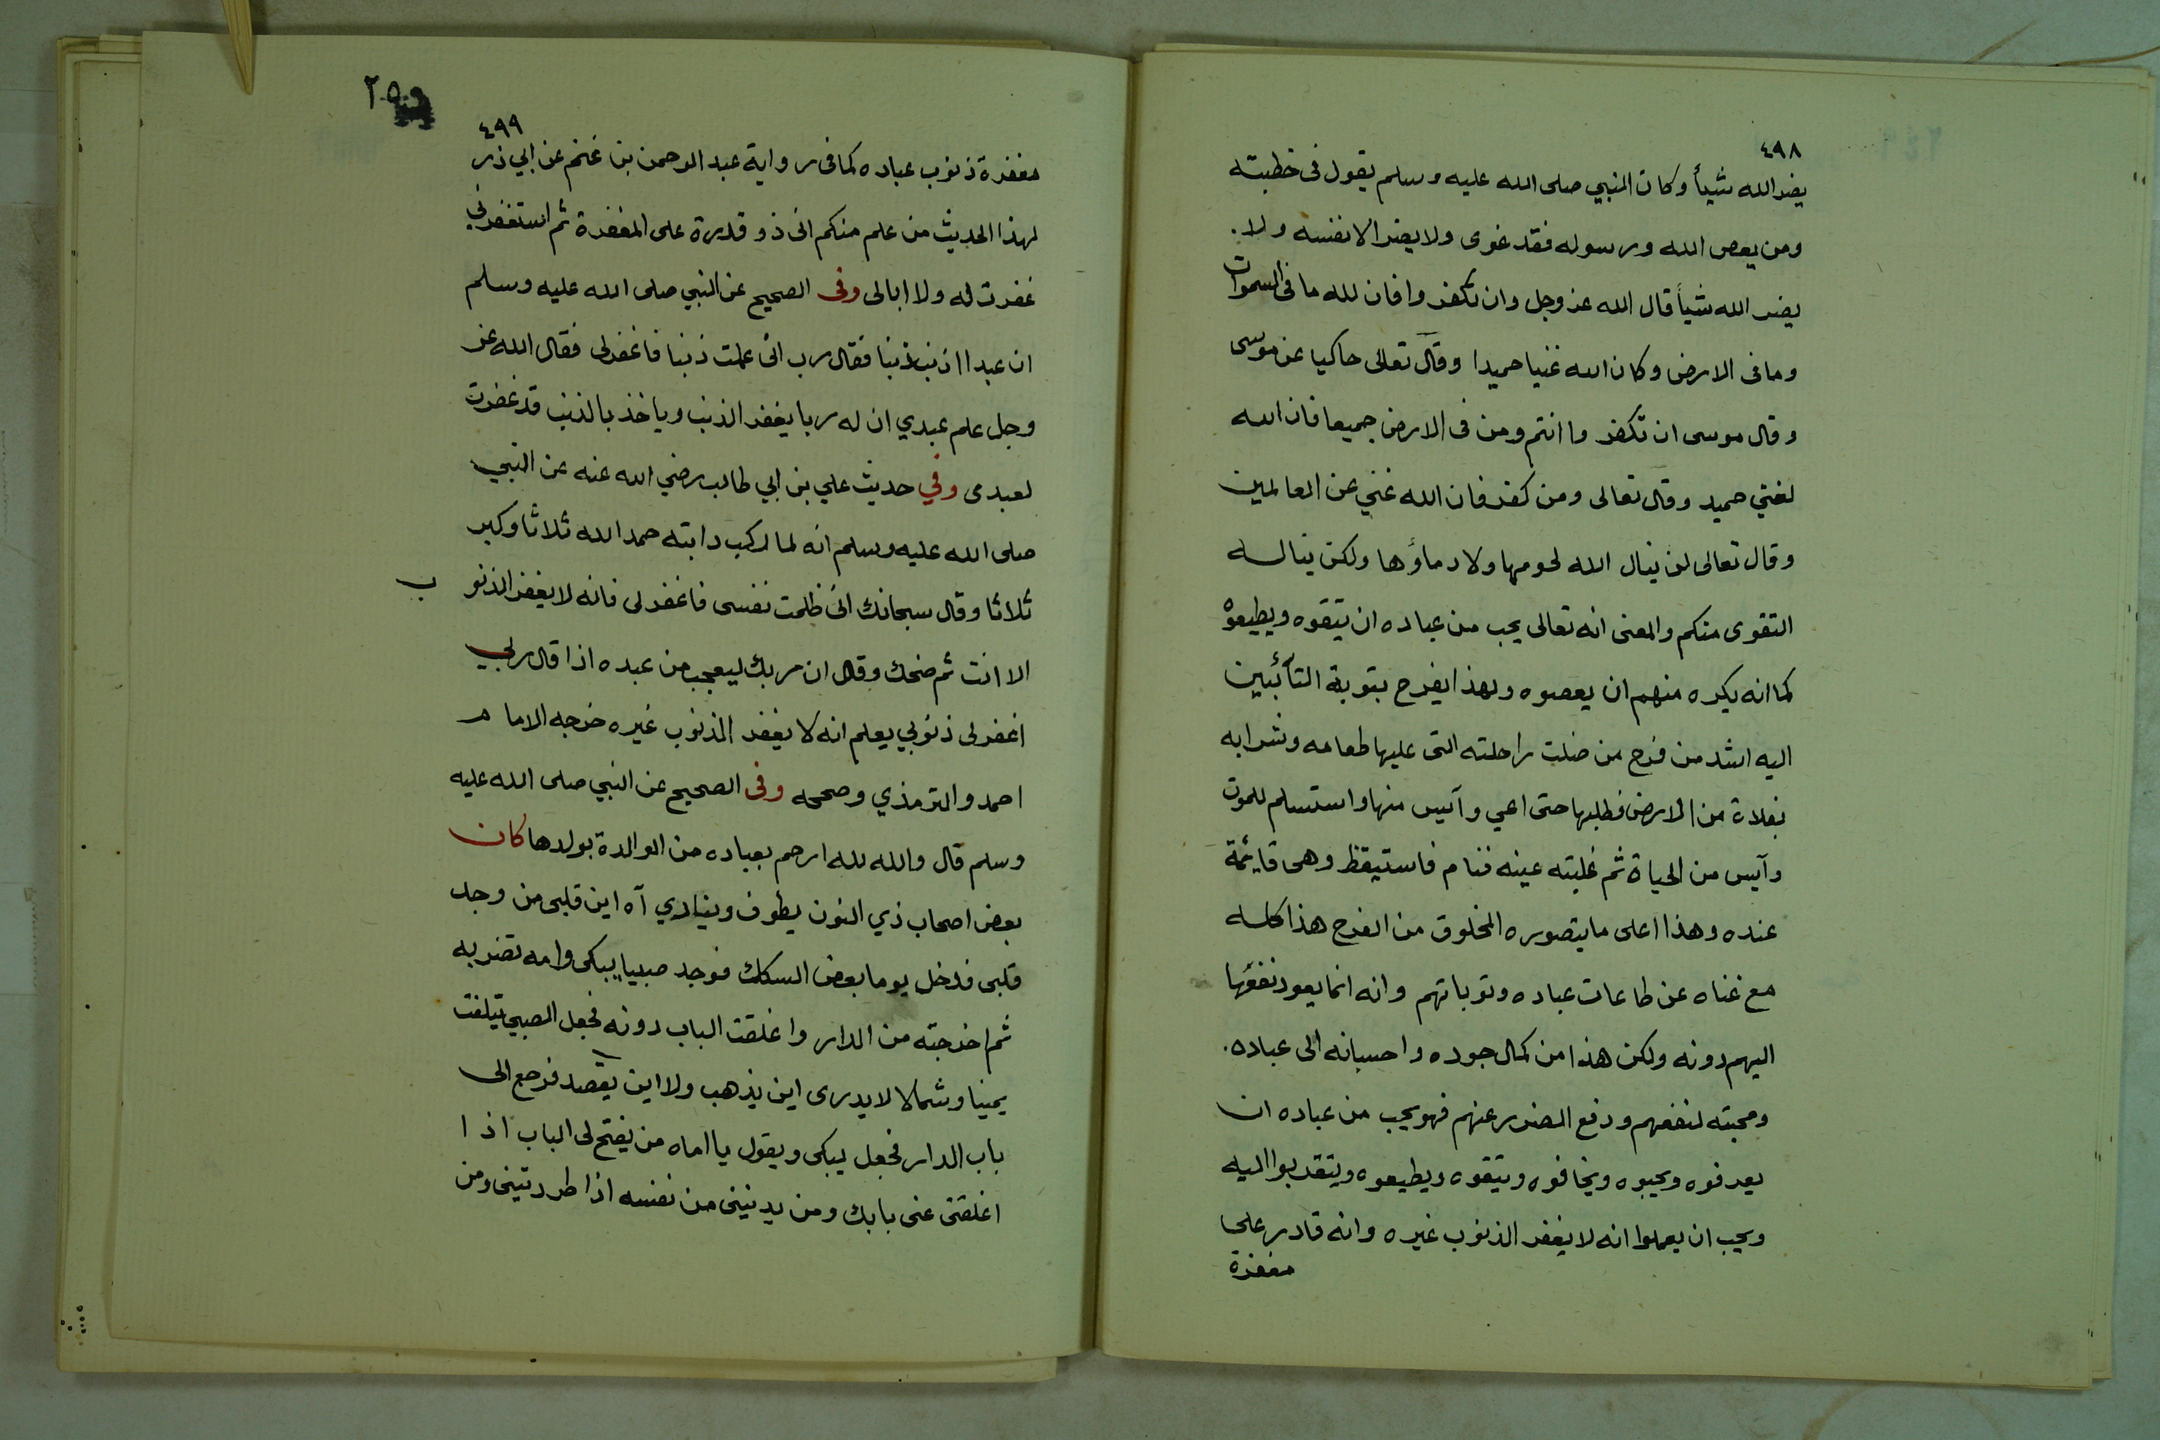 ٤٩٨
يضر الله شيأ وكان النبي صلى الله عليه وسلم يقول فى خطبته
ومن يعص الله ورسوله فقد غوى ولا يضر الا نفسه ولا.
يضر الله شيأ قال الله عز وجل وان تكفروا فان لله ما فى السموات
وما فى الارض وكان الله غنيا حميدا وقال تعالى حاكيا عن موسى
وقال موسى ان تكفروا انتم ومن فى الارض جميعا فان الله
لغني حميد وقال تعالى ومن كفر فان الله غني عن العالمين
وقال تعالى لن ينال الله لحومها ولا دماؤها ولكن يناله
التقوى منكم والمعنى انه تعالى يحب من عباده ان يتقوه ويطيعوه
كما انه يكره منهم ان يعصوه ولهذا يفرح بتوبة التآئبين
اليه اشد من فرح من ضلت راحلته التى عليها طعامه وشرابه
بفلاة من الارض فطلبها حتى اعي وآيس منها واستسلم للموت
وآيس من الحياة ثم غلبته عينه فنام فاستيقظ وهى قائمة
عنده وهذا اعلى ما يتصوره المخلوق من الفرح هذا كله
مع غناه عن طاعات عباده وتوباتهم وانه انما يعود نفعها
اليهم دونه ولكن هذا من كمال جوده واحسانه الى عباده.
ومحبته لنفعهم ودفع الضرر عنهم فهو يحب من عباده ان
يعرفوه ويحبوه ويخافوه ويتقوه ويطيعوه ويتقربوا اليه
ويحب ان يعملوا انه لا يغفر الذنوب غيره وانه قادر على
مغفرة
٢٥٠
٤٩٩
مغفرة ذنوب عباده كما فى رواية عبد الرحمن بن غنم عن ابي ذر
لهذا الحديث من علم منكم انى ذو قدرة على المغفرة ثم استغفرني
غفرت له ولا ابالى وفى الصحيح عن النبي صلى الله عليه وسلم
ان عبدا اذنب ذنبا فقال رب انى عملت ذنبا فاغفر لى فقال الله عز
وجل علم عبدي ان له ربا يغفر الذنب وياخذ بالذنب قد غفرت
لعبدى وفي حديث علي بن ابي طالب رضي الله عنه عن النبي
صلى الله عليه وسلم انه لما ركب دابته حمد الله ثلاثا وكبر
ثلاثا وقال سبحانك انى ظلمت نفسى فاغفر لى فانه لا يغفر الذنوب
الا انت ثم ضحك وقال ان ربك ليعجب من عبده اذا قال ربي
اغفر لى ذنوبي يعلم انه لا يغفر الذنوب غيره خرجه الامام
احمد والترمذي وصححه وفى الصحيح عن النبي صلى الله عليه
وسلم قال والله لله ارحم بعباده من الوالدة بولدها كان
بعض اصحاب ذي النون يطوف وينادي آه اين قلبى من وجد
قلبى فدخل يوما بعض السكك فوجد صبيا يبكى وامه تضربه
ثم اخرجته من الدار واغلقت الباب دونه فجعل الصبي يتلفت
يمينا وشمالا لا يدرى اين يذهب ولا اين يقصد فرجع الى
باب الدار فجعل يبكى ويقول يا اماه من يفتح لى الباب اذا
اغلقتى عنى بابك ومن يدنينى من نفسه اذا طردتينى ومن